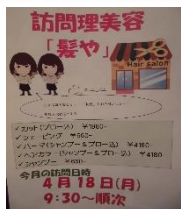 訪問理美容
「髪や」
Hair salon
✓カット(ブロー込) ¥1980-
✓シェービング ¥660-
✓パーマ(シャンプー&ブロー込) ¥4180-
✓ヘアカラー(シャンプー&ブロー込) ¥4180
✓シャンプー ¥660-
今月の訪問日時
4月18日(月)
9:30~順次